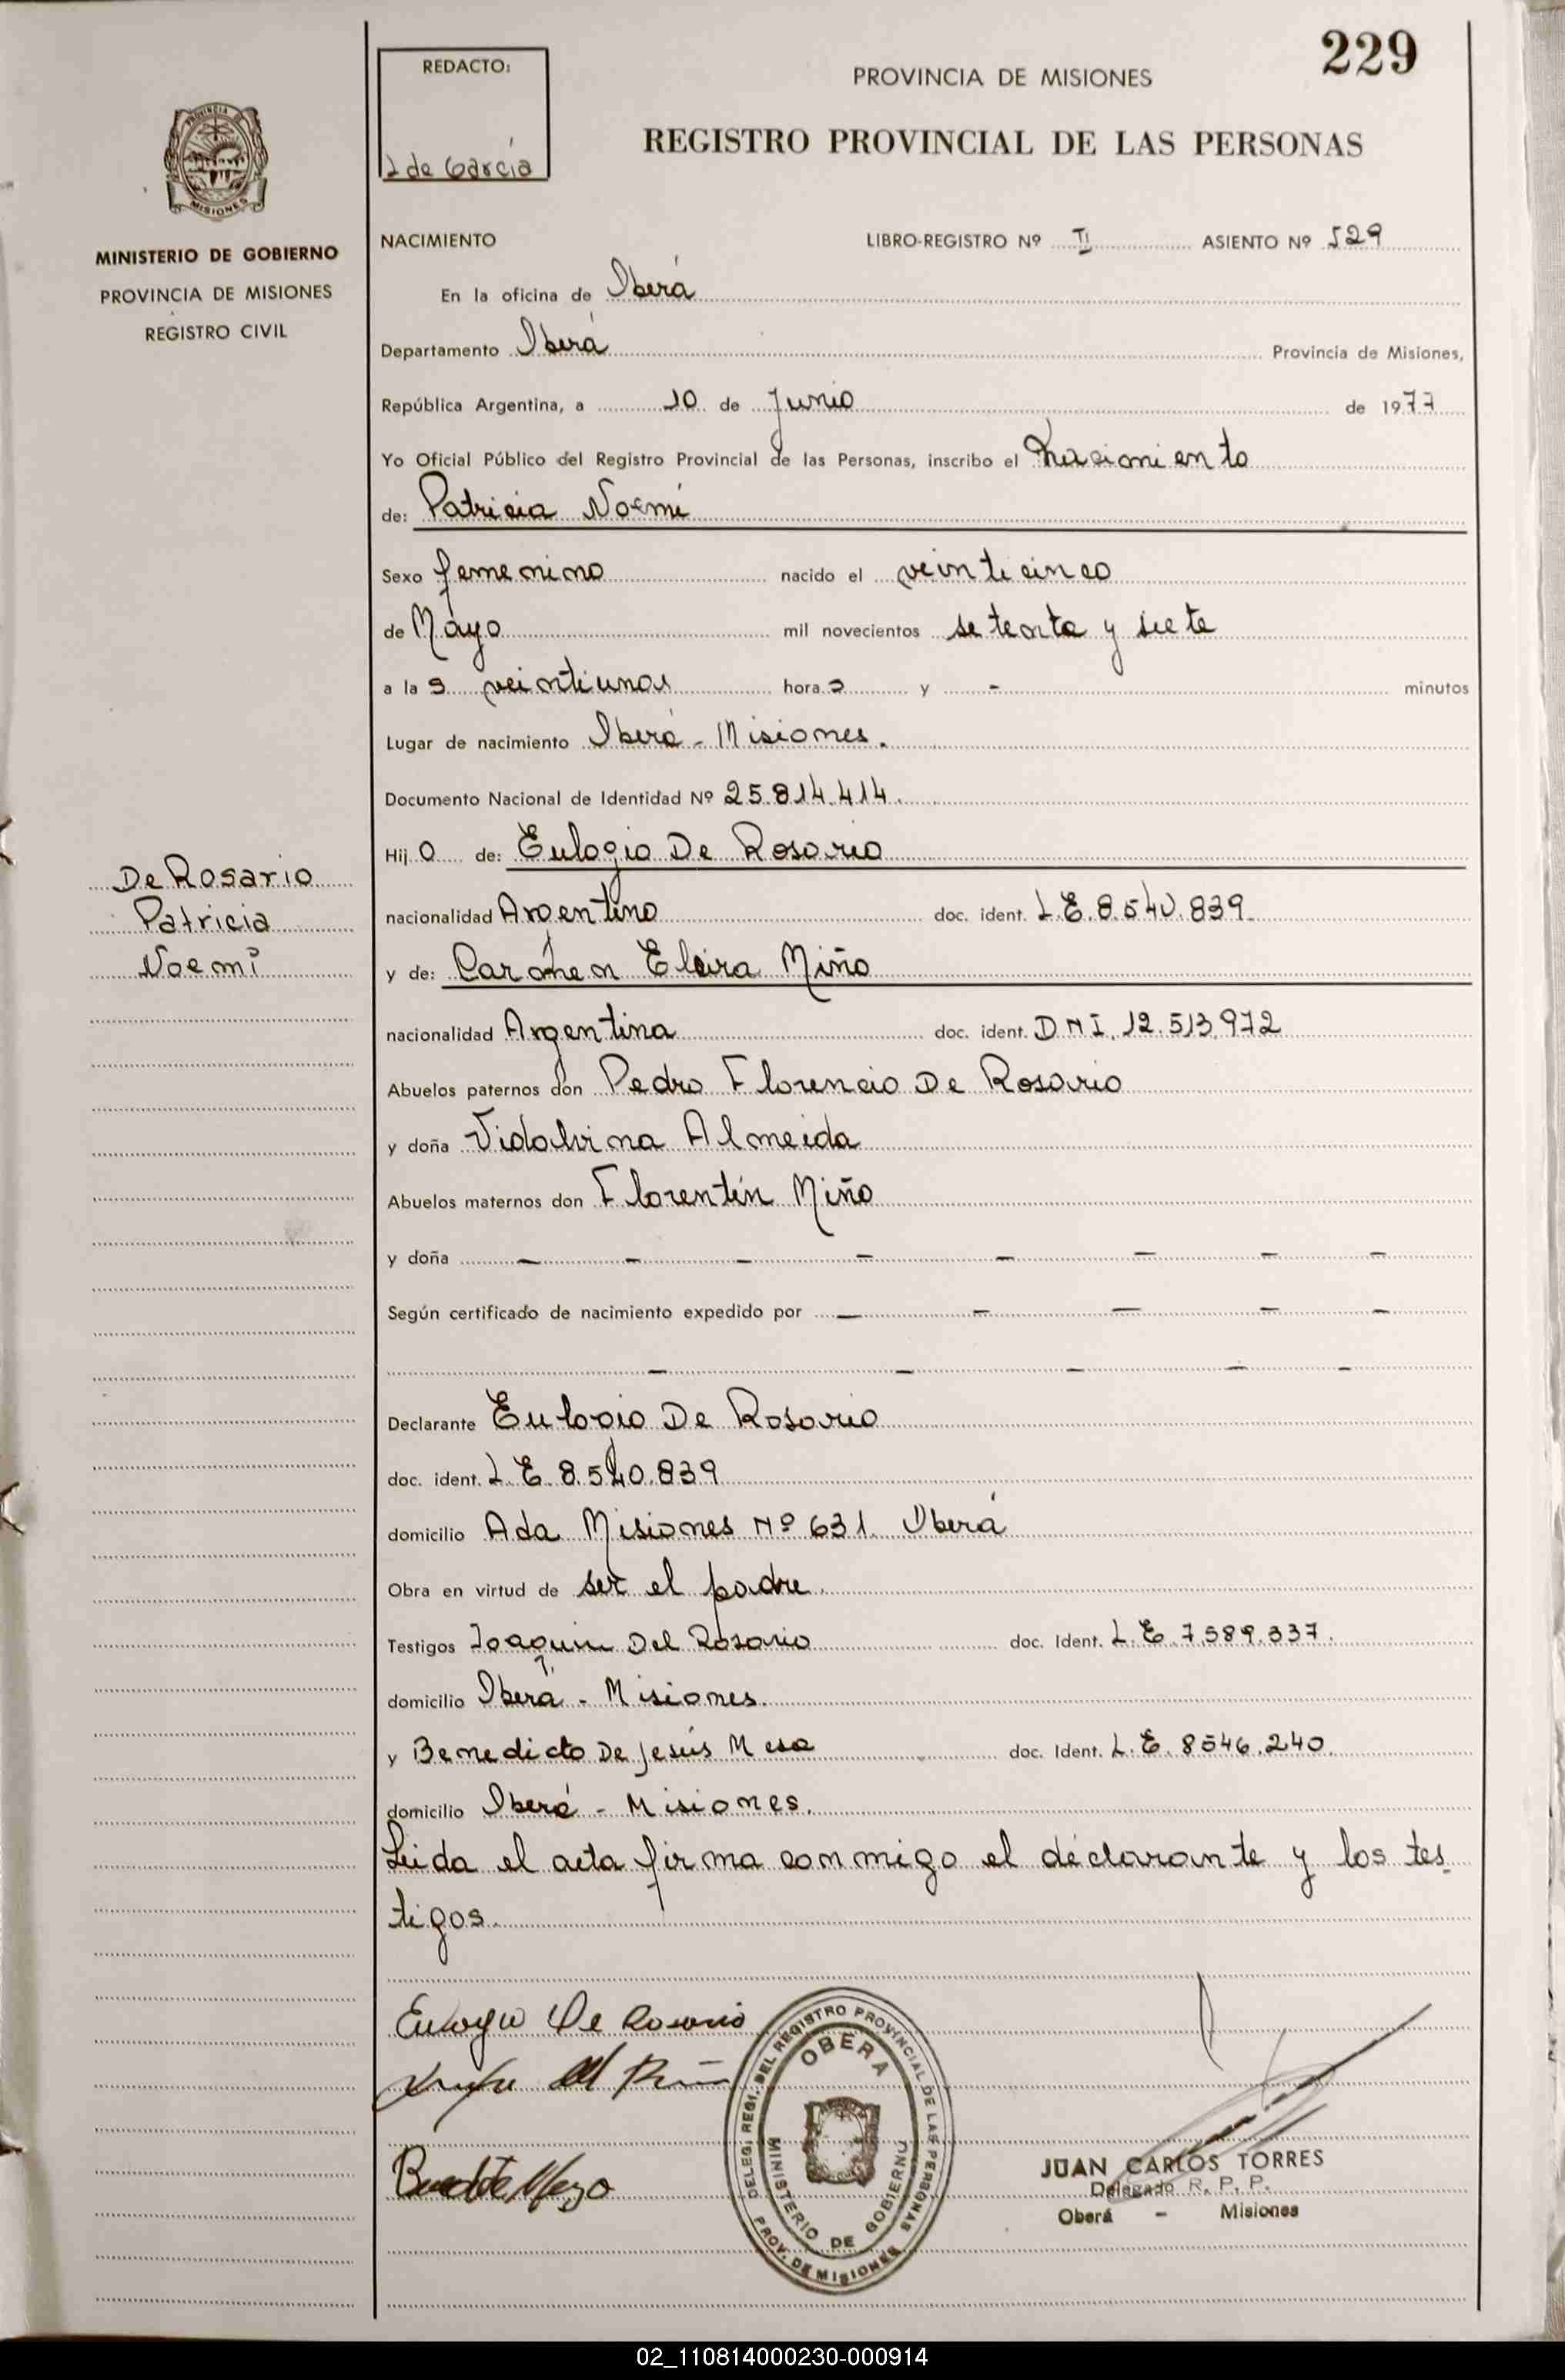 229
REDACTO:
L de García
PROVINCIA DE MISIONES
REGISTRO PROVINCIAL DE LAS PERSONAS
PROVINCIA
MISIONES
MINISTERIO DE GOBIERNO
PROVINCIA DE MISIONES
REGISTRO CIVIL
NACIMIENTO LIBRO-REGISTRO Nº II ASIENTO Nº 529
En la oficina de Oberá
Departamento Oberá Provincia de Misiones,
República Argentina, a 10 de Junio de 1977
Yo Oficial Público del Registro Provincial de las Personas, inscribo el Nacimiento
de: Patricia Noemí
Sexo femenino nacido el veinticinco
de Mayo mil novecientos setenta y siete
a la s veintiunas hora s y - minutos
Lugar de nacimiento Oberá - Misiones.
Documento Nacional de Identidad Nº 25.814.414.
Hij O de: Eulogio De Rosario
De Rosario
Patricia
Noemí
nacionalidad Argentino doc. ident. L.E. 8.540.839
y de: Carmen Elvira Miño
nacionalidad Argentina doc. ident. DNI. 12.513.972
Abuelos paternos don Pedro Florencio De Rosario
y doña Vidalvina Almeida
Abuelos maternos don Florentín Miño
y doña - - - - - - - -
Según certificado de nacimiento expedido por - - - - -
- - - - -
Declarante Eulogio De Rosario
doc. ident. L E 8.540.839
domicilio Avda Misiones Nº 631. Oberá
Obra en virtud de ser el padre.
Testigos Joaquin Del Rosario doc. Ident. L.E. 7.589.337.
domicilio Oberá - Misiones.
y Benedicto De Jesús Meza doc. Ident. L.E. 8546.240.
domicilio Oberá - Misiones.
Leida el acta firma conmigo el declarante y los tes
tigos.
Eulogio De Rosario
DELEG. REGI. DEL REGISTRO PROVINCIAL DE LAS PERSONAS
OBERA
MINISTERIO DE GOBIERNO
PROV. DE MISIONES
JUAN CARLOS TORRES
Delegado R. P. P.
Oberá - Misiones
02_110814000230-000914